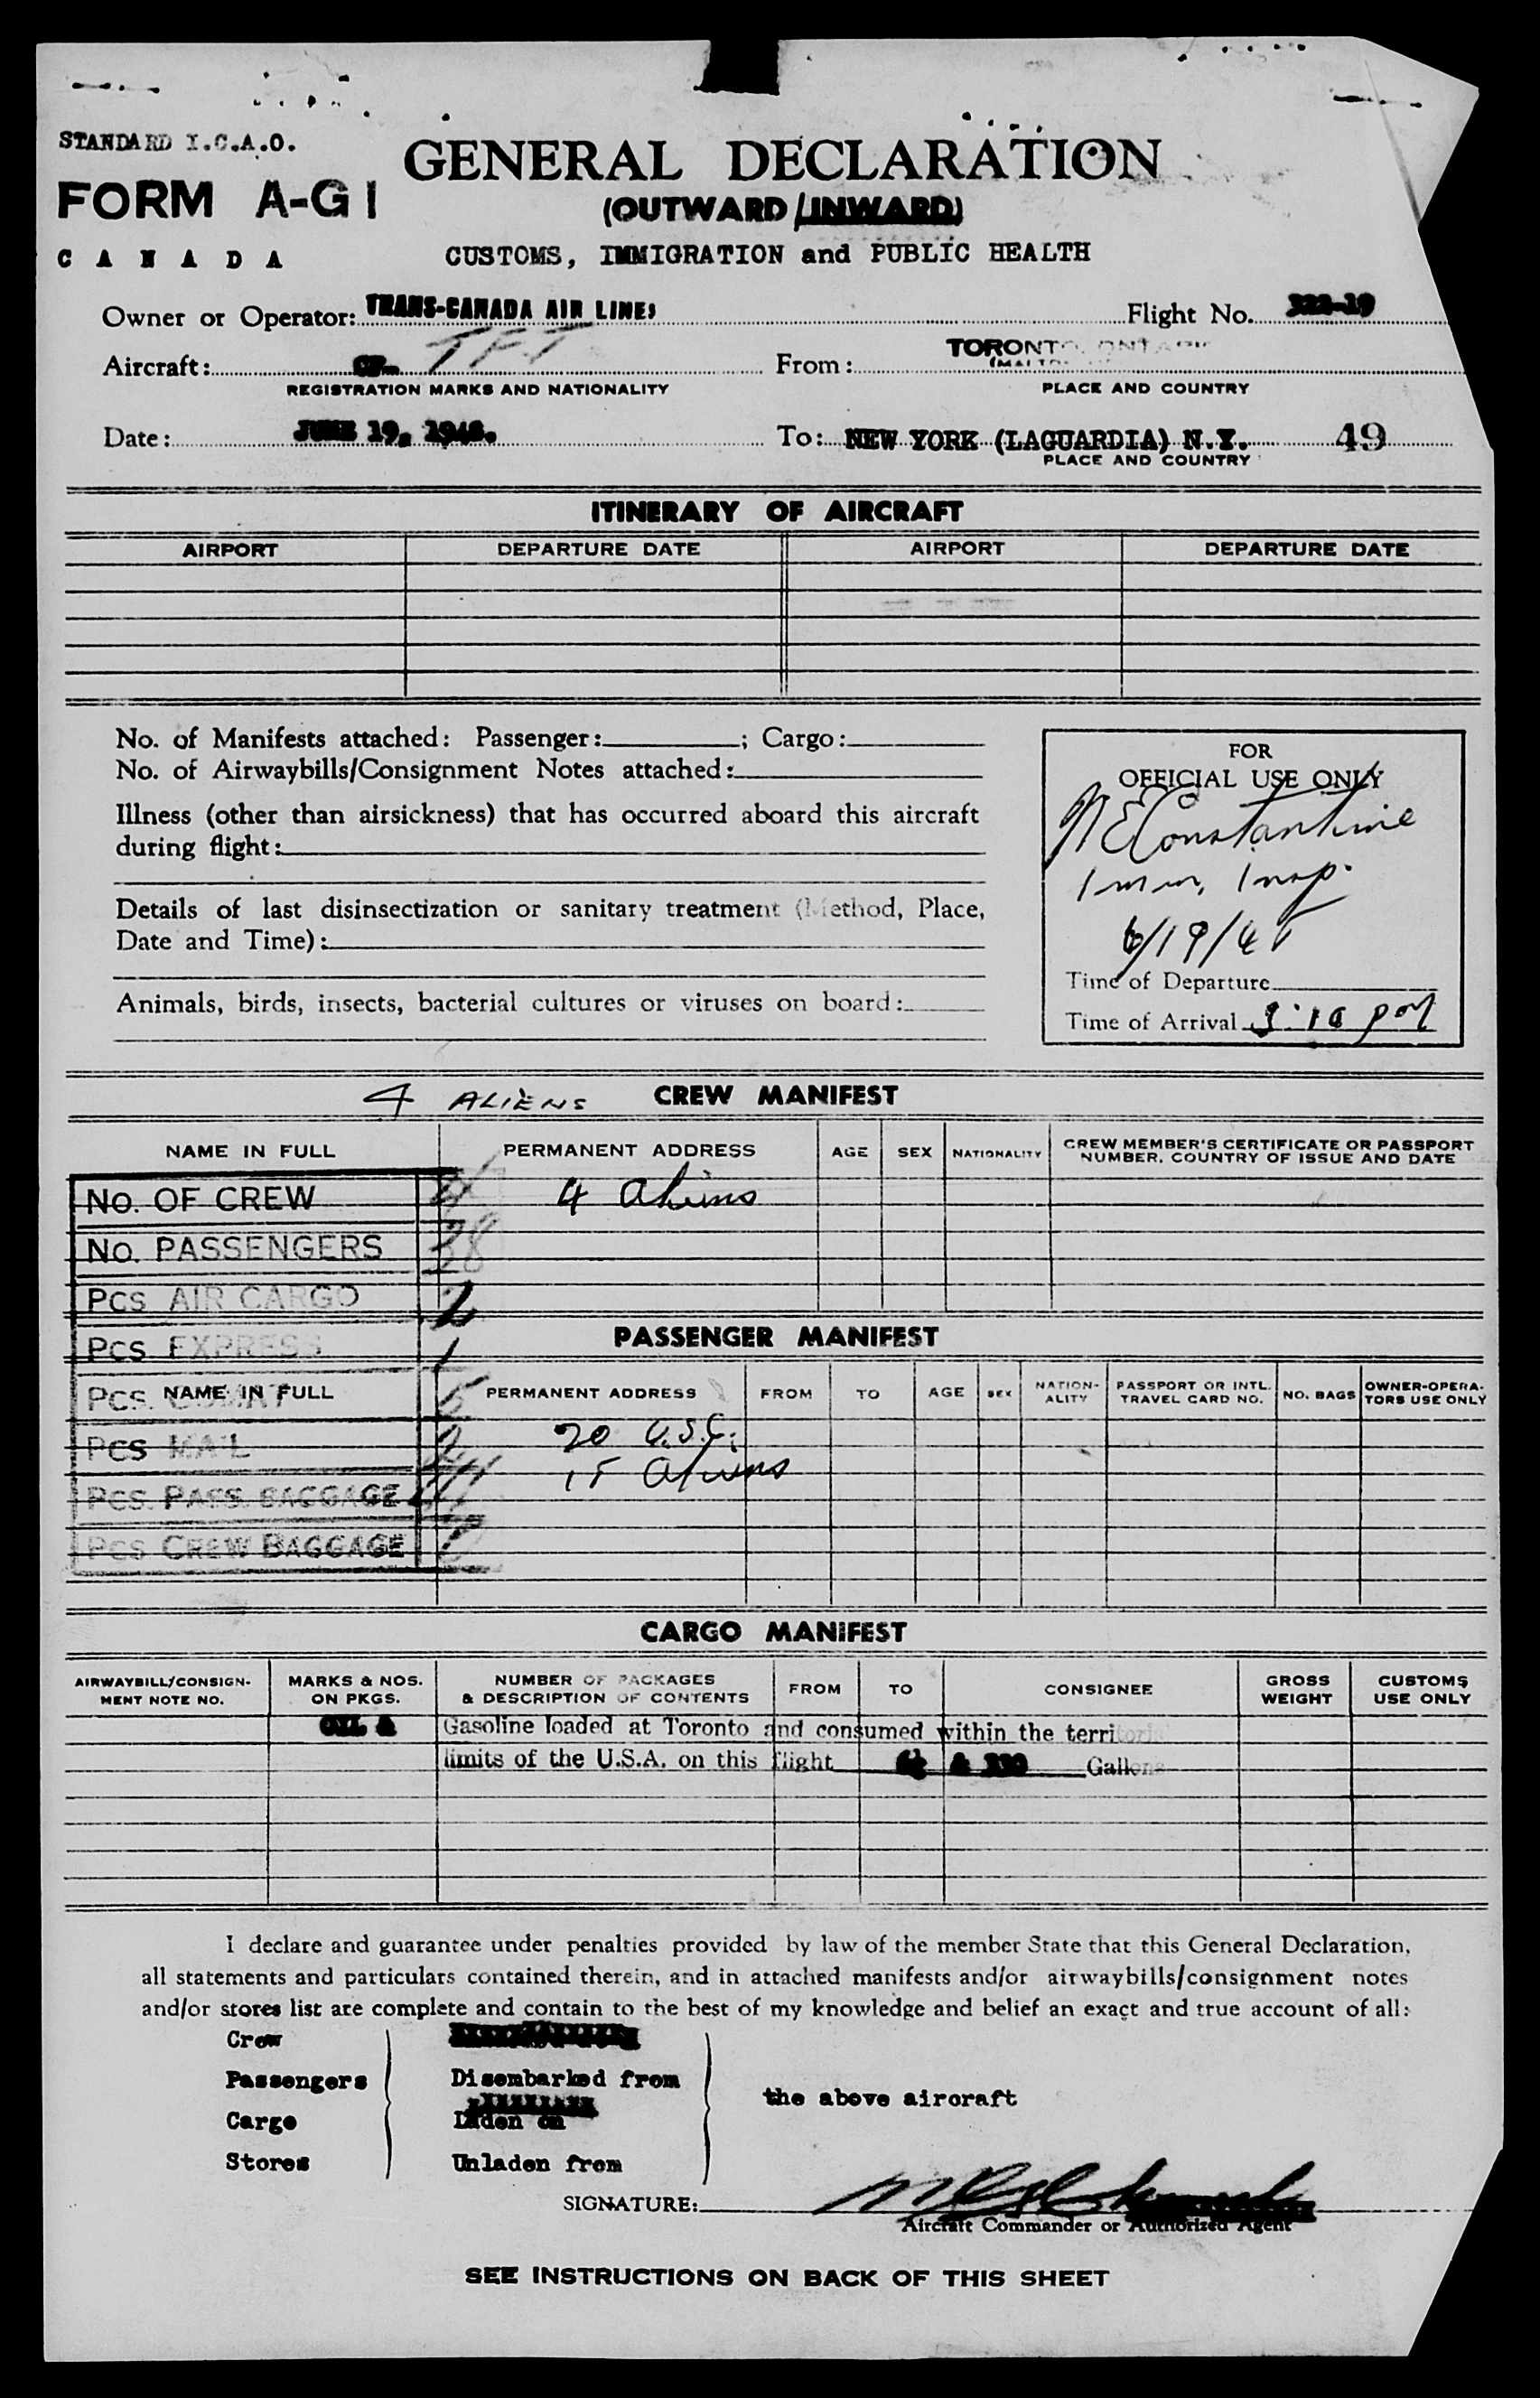 STANDARD I.C.A.O.
FORM A-G1
CANADA
GENERAL DECLARATION
(OUTWARD/INWARD)
CUSTOMS, IMMIGRATION and PUBLIC HEALTH
Owner or Operator: TRANS-CANADA AIR LINES Flight No. 322-19
Aircraft: CF- TFT From: TORONTO ONTARIO
REGISTRATION MARKS AND NATIONALITY PLACE AND COUNTRY
Date: JUNE 19, 1948. To: NEW YORK (LAGUARDIA) N.Y. 49
PLACE AND COUNTRY
ITINERARY OF AIRCRAFT
AIRPORT DEPARTURE DATE AIRPORT DEPARTURE DATE
No. of Manifests attached: Passenger: ; Cargo:
No. of Airwaybills/Consignment Notes attached:
Illness (other than airsickness) that has occurred aboard this aircraft
during flight:
Details of last disinsectization or sanitary treatment (Method, Place,
Date and Time):
Animals, birds, insects, bacterial cultures or viruses on board:
FOR
OFFICIAL USE ONLY
Constantine
Imm. Insp.
6/19/48
Time of Departure
Time of Arrival 3:10 PM
4 ALIENS CREW MANIFEST
NAME IN FULL PERMANENT ADDRESS AGE SEX NATIONALITY CREW MEMBER'S CERTIFICATE OR PASSPORT
NUMBER, COUNTRY OF ISSUE AND DATE
No. OF CREW 4 4 Aliens
No. PASSENGERS 38
PCS AIR CARGO 2
PCS EXPRESS 1
PASSENGER MANIFEST
PCS. COMAT 5
NAME IN FULL PERMANENT ADDRESS FROM TO AGE SEX NATION-
ALITY PASSPORT OR INTL.
TRAVEL CARD NO. NO. BAGS OWNER-OPERA-
TORS USE ONLY
PCS MAIL 2 20 U.S.C.
15 Aliens
PCS. PASS. BAGGAGE
PCS CREW BAGGAGE
CARGO MANIFEST
AIRWAYBILL/CONSIGN-
MENT NOTE NO. MARKS & NOS.
ON PKGS. NUMBER OF PACKAGES
& DESCRIPTION OF CONTENTS FROM TO CONSIGNEE GROSS
WEIGHT CUSTOMS
USE ONLY
OIL & Gasoline loaded at Toronto and consumed within the territorial
limits of the U.S.A. on this flight & 330 Gallons
I declare and guarantee under penalties provided by law of the member State that this General Declaration,
all statements and particulars contained therein, and in attached manifests and/or airwaybills/consignment notes
and/or stores list are complete and contain to the best of my knowledge and belief an exact and true account of all:
Crew
Passengers Disembarked from
the above aircraft
Cargo Laden on
Stores Unladen from
SIGNATURE:
Aircraft Commander or Authorized Agent
SEE INSTRUCTIONS ON BACK OF THIS SHEET